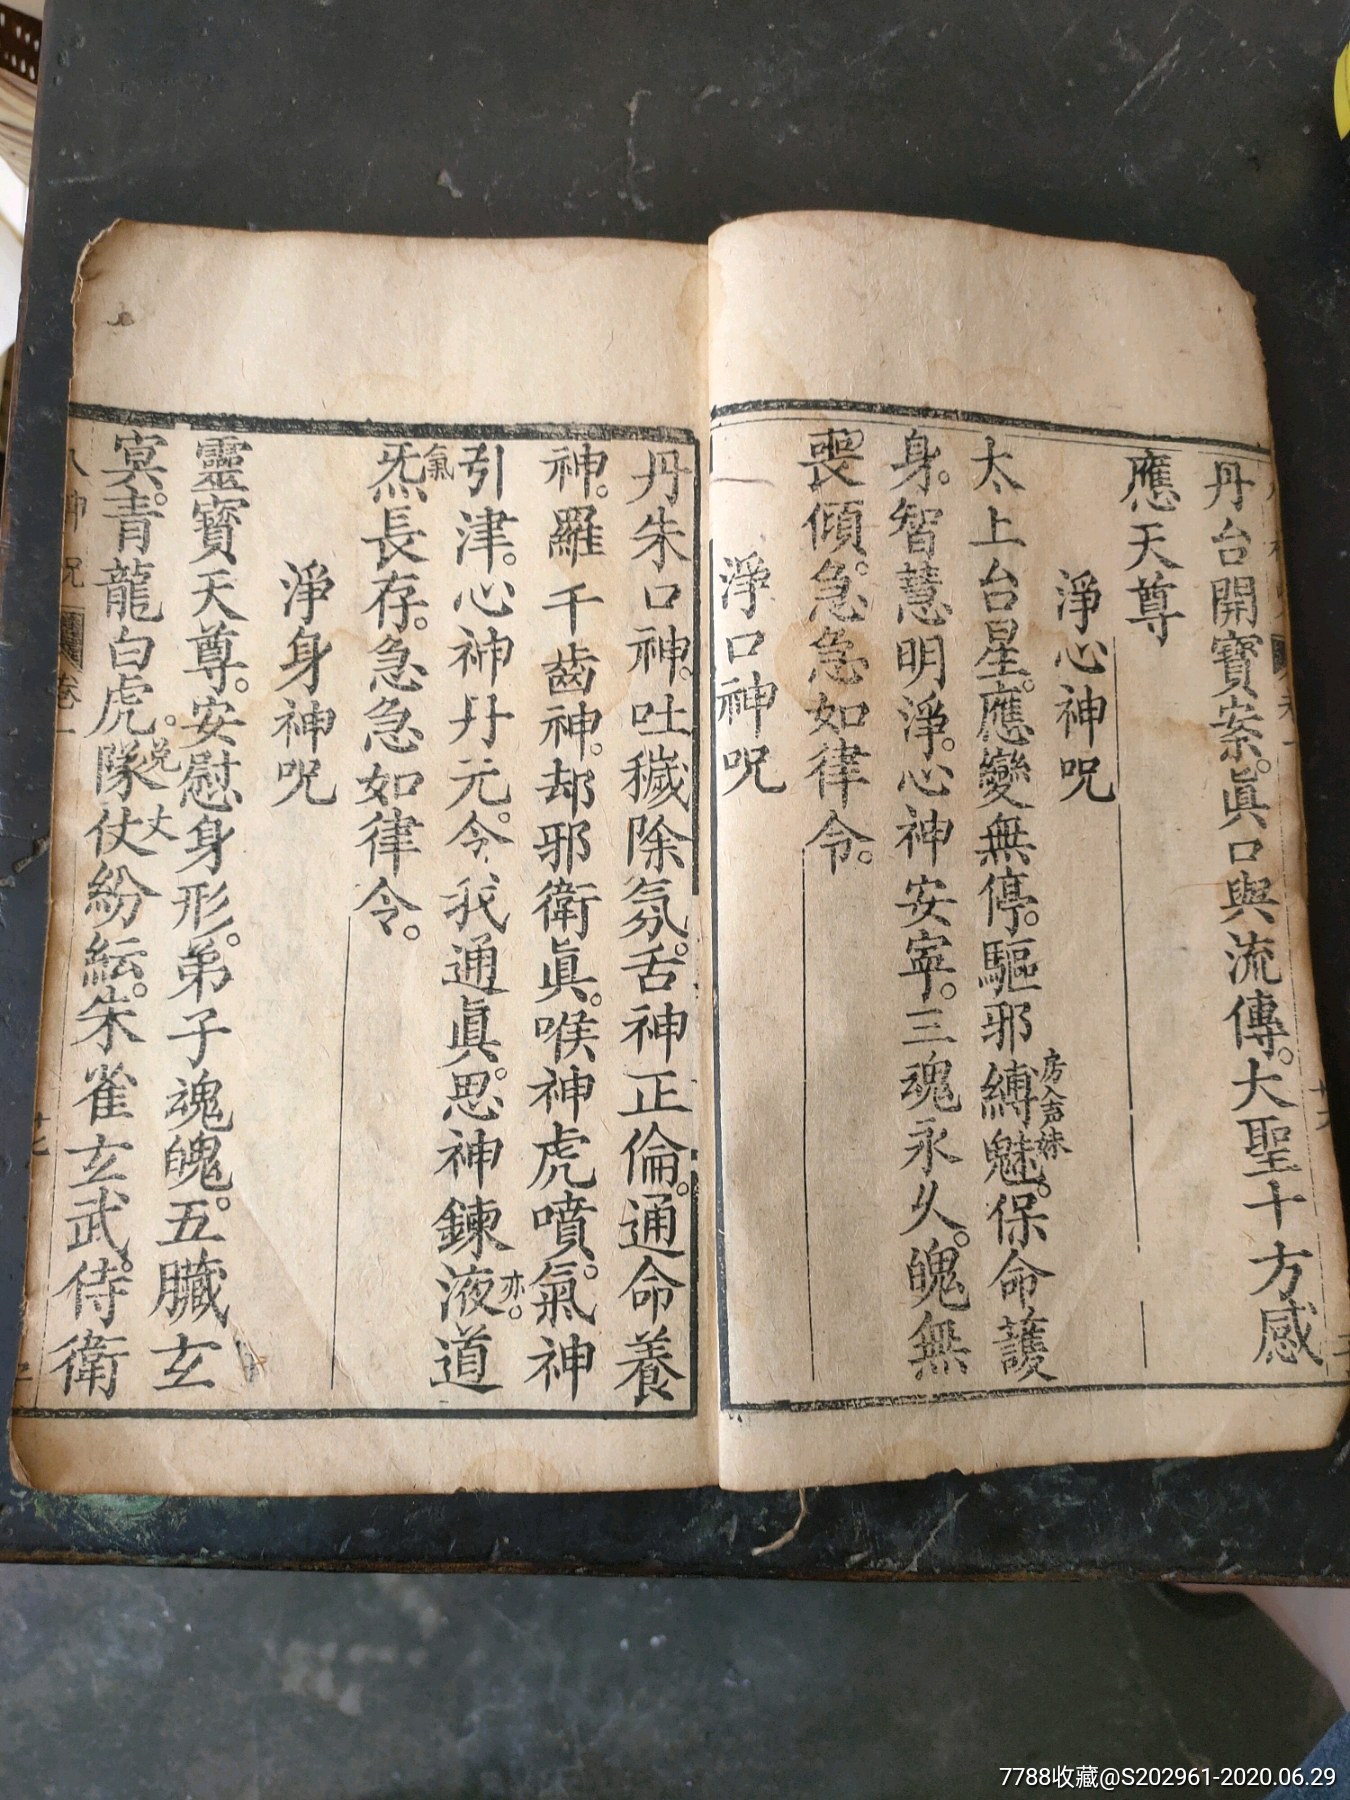 丹台開寶案。眞口與流傳。大聖十方感
應天尊
淨心神呪
太上台星。應變無停。驅邪縛魅。保命護
房入声
妹
身。智慧明淨。心神安寧。三魂永久。魄無
喪傾。急急如律令。
淨口神呪
丹朱口神。吐穢除氛。舌神正倫。通命養
神。羅千齒神。却邪衛眞。喉神虎噴。氣神
引津。心神丹元。令我通眞。思神鍊液道
亦。
炁長存。急急如律令。
氣
淨身神呪
靈寶天尊。安慰身形。弟子魂魄。五臟玄
冥。青龍白虎。隊仗紛紜。朱雀玄武。侍衛
丈
八神呪
卷一
十七
7788收藏@S202961-2020.06.29